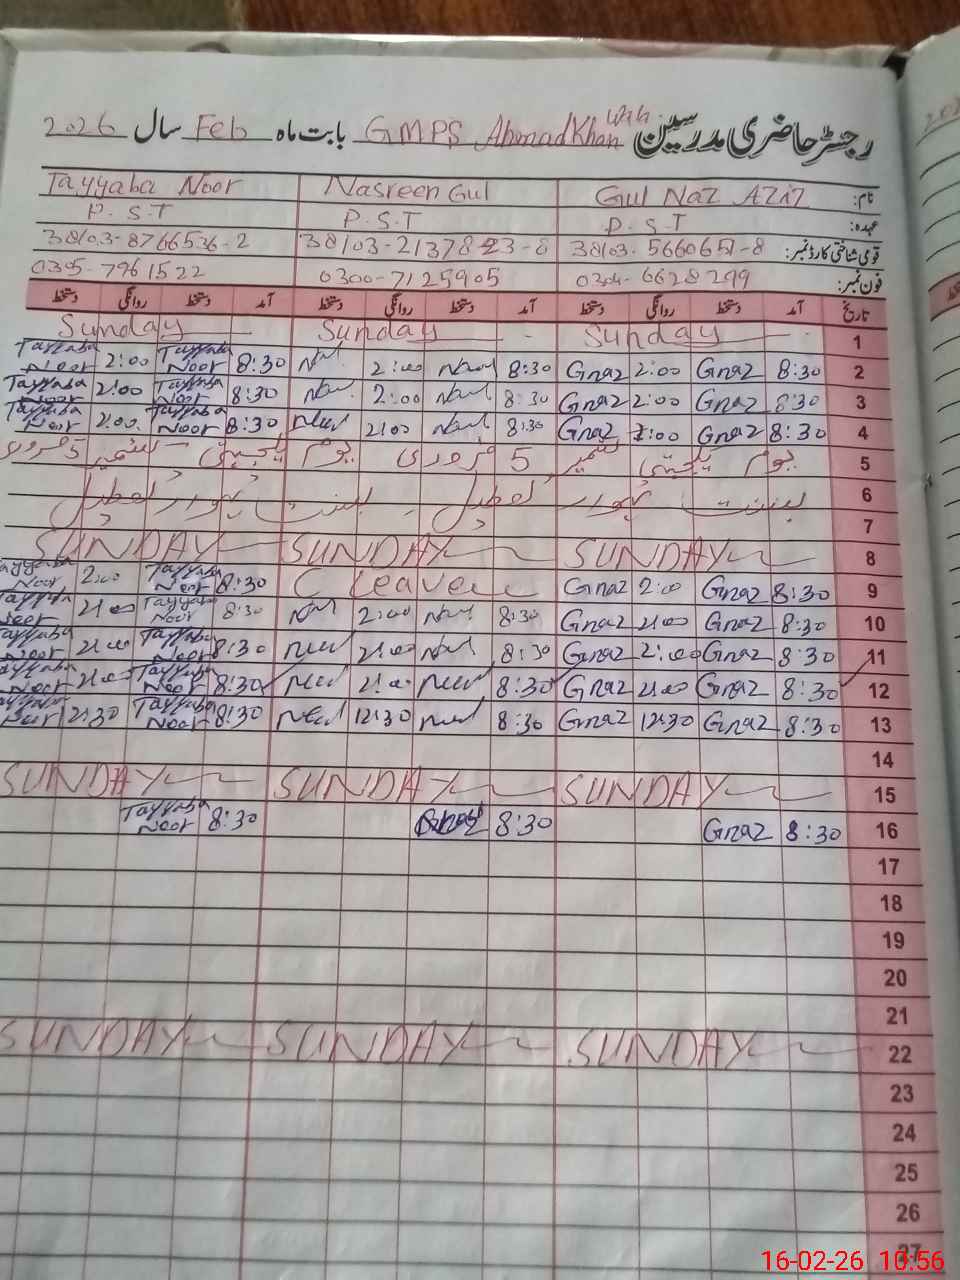 رجسٹر حاضری مدرسین GMPS Ahmad Khan Wala بابت ماہ Feb سال 2026
نام: Gul Naz Aziz Nasreen Gul Tayyaba Noor
عہدہ: P.S.T P.S.T P.S.T
قومی شناختی کارڈ نمبر: 38103-5660651-8 38103-2137823-8 38103-8766536-2
فون نمبر: 0300-7125905 0305-7961522
تاریخ آمد دستخط روانگی دستخط آمد دستخط روانگی دستخط آمد دستخط روانگی دستخط
1 Sunday Sunday Sunday
2 8:30 Gnaz 2:00 Gnaz 8:30 2:00 8:30 Tayyaba Noor 2:00 Tayyaba Noor
3 8:30 Gnaz 2:00 Gnaz 8:30 2:00 8:30 Tayyaba Noor 2:00 Tayyaba Noor
4 8:30 Gnaz 2:00 Gnaz 8:30 2:00 8:30 Tayyaba Noor 2:00 Tayyaba Noor
5 یوم یکجہتی کشمیر 5 فروری یوم یکجہتی کشمیر 5 فروری
6 بسنت تہوار تعطیل بسنت تہوار تعطیل
7
8 SUNDAY SUNDAY SUNDAY
9 8:30 Gnaz 2:00 Gnaz C Leave 8:30 Tayyaba Noor 2:00 Tayyaba Noor
10 8:30 Gnaz 2:00 Gnaz 8:30 2:00 8:30 Tayyaba Noor 2:00 Tayyaba Noor
11 8:30 Gnaz 2:00 Gnaz 8:30 2:00 8:30 Tayyaba Noor 2:00 Tayyaba Noor
12 8:30 Gnaz 2:00 Gnaz 8:30 2:00 8:30 Tayyaba Noor 2:00 Tayyaba Noor
13 8:30 Gnaz 12:30 Gnaz 8:30 12:30 8:30 Tayyaba Noor 12:30 Tayyaba Noor
14
15 SUNDAY SUNDAY SUNDAY
16 8:30 Gnaz 8:30 8:30 Tayyaba Noor
17
18
19
20
21
22 SUNDAY SUNDAY SUNDAY
23
24
25
26
27
16-02-26 10:56